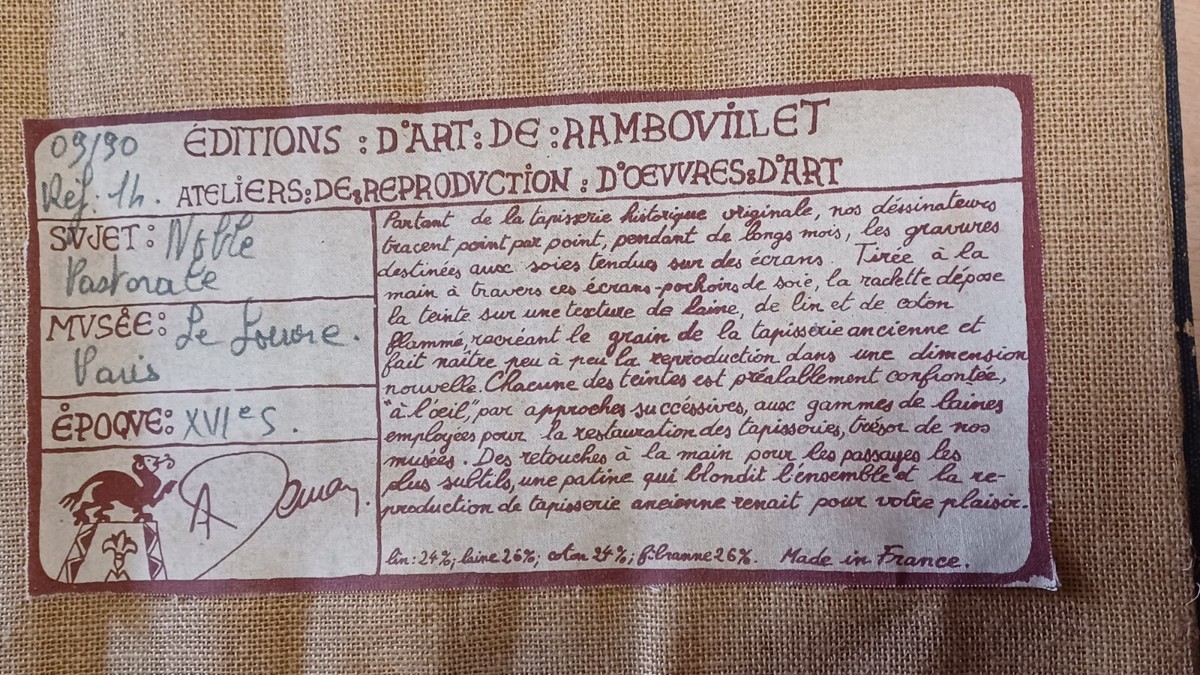 09/90
ÉDITIONS : D'ART : DE : RAMBOVILLET
Réf : 14.
ATELIERS : DE : REPRODVCTION : D'OEVVRES : D'ART
SVJET : Noble
Pastorale
MVSÉE : Le Louvre.
Paris
ÉPOQVE : XVIe S.
Partant de la tapisserie historique originale, nos déssinateurs
tracent point par point, pendant de longs mois, les gravures
destinées aux soies tendues sur des écrans. Tirée à la
main à travers ces écrans-pochoirs de soie, la raclette dépose
la teinte sur une texture de laine, de lin et de coton
flammé, recréant le grain de la tapisserie ancienne et
fait naître peu à peu la reproduction dans une dimension
nouvelle. Chacune des teintes est préalablement confrontée,
"à l'œil," par approches succéssives, aux gammes de laines
employées pour la restauration des tapisseries, trésor de nos
musées. Des retouches à la main pour les passages les
plus subtils, une patine qui blondit l'ensemble et la re-
production de tapisserie ancienne renait pour votre plaisir.
lin : 24% ; laine 26% ; coton 24% ; fibranne 26%. Made in France.